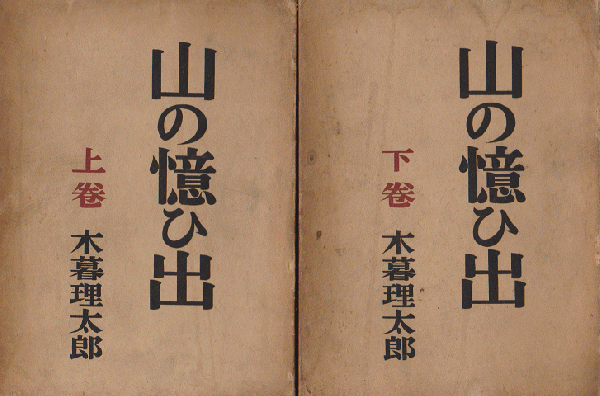 山の憶ひ出
上巻
木暮理太郎
山の憶ひ出
下巻
木暮理太郎